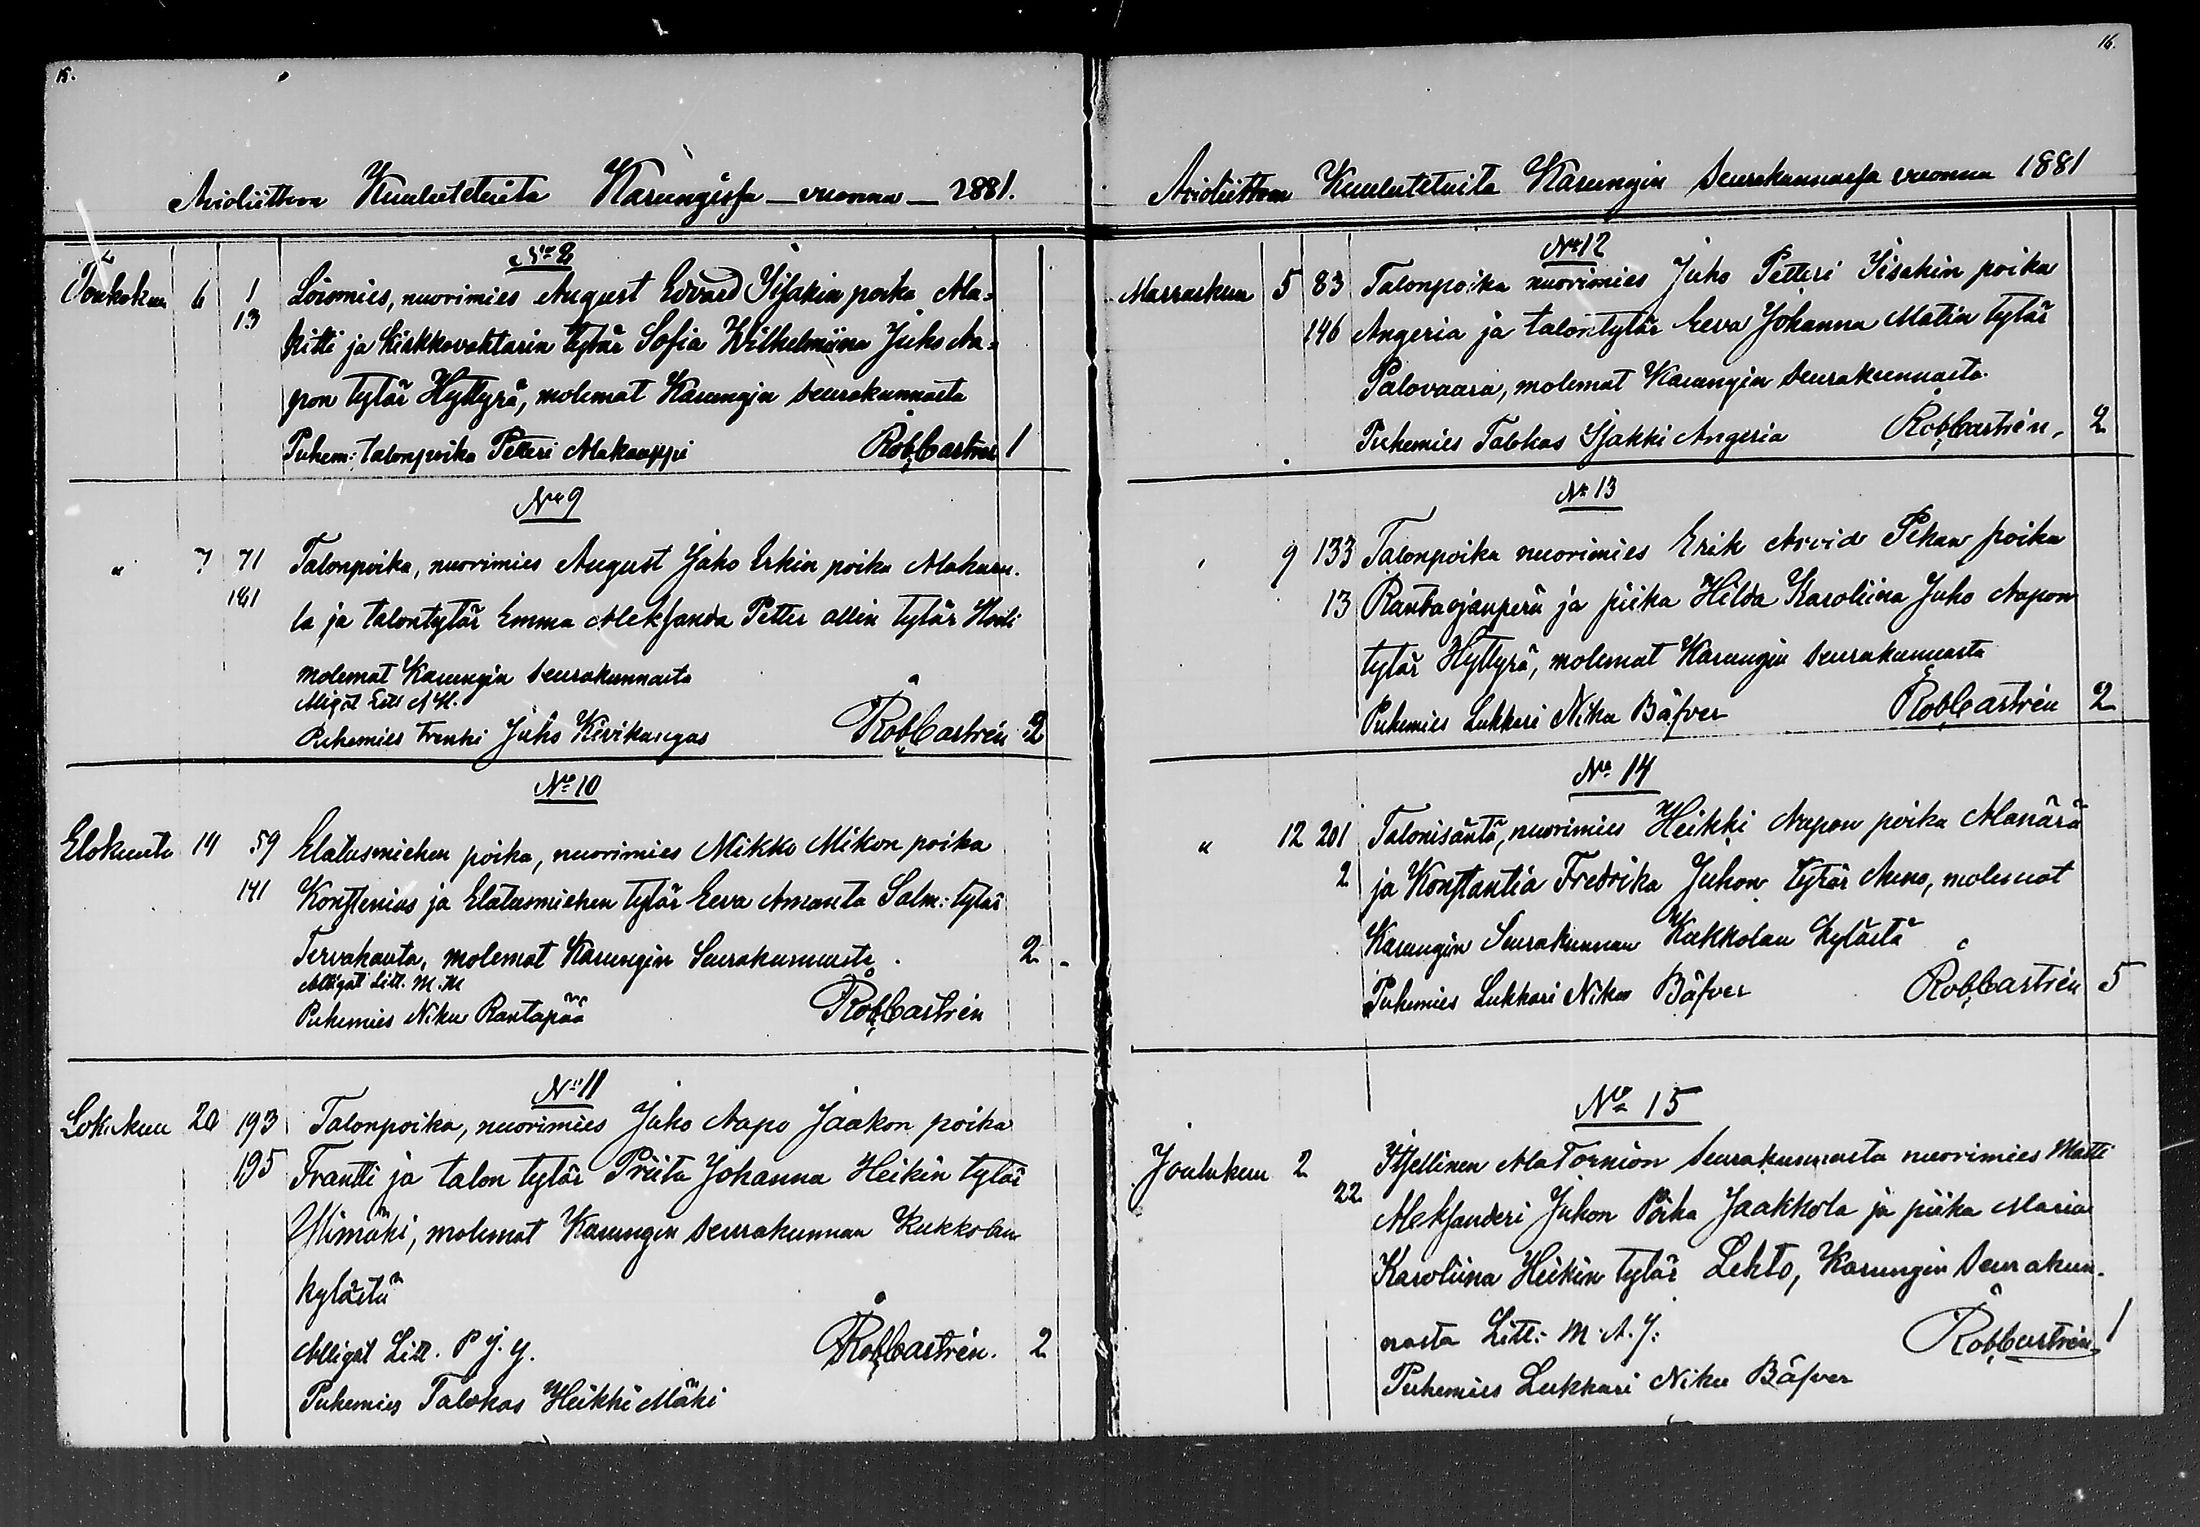 15.
Avioliittoon Kuulutetuita Karungissa – vuonna – 1881.
No 8
Toukokuu 6 1 Loismies, nuorimies August Edvard Iisakin poika Ala=
13 kitti ja kirkkovahtarin tytär Sofia Wilhelmiina Juho Aa=
pon tytär Hyttyrä, molemat Karungin seurakunnasta
Puhem: talonpoika Petteri Alakauppi Rob Castrén 1
No 9
" 7 71 Talonpoika, nuorimies August Juho Erkin poika Alakuru-
181 la ja talontytär Emma Aleksanda Petter ollin tytär
molemat Karungin seurakunnasta
Aligat Litt A H.
Puhemies Frenki Juho Kivikangas Rob Castrén 2
No 10
Elokuuta 14 59 Elatusmiehen poika, nuorimies Mikko Mikon poika
141 Konstenius ja Elatusmiehen tytär Eeva Amanta Salm: tytär
Tervahauta, molemat Karungin Seurakunnasta. 2 -
Alligat Litt. M. M
Puhemies Niku Rantapää Rob Castrén
No 11
Lokakuu 20 193 Talonpoika, nuorimies Juho Aapo Jaakon poika
195 Frantti ja talon tytär Priita Johanna Heikin tytär
Ylimäki, molemat Karungin seurakunnan Kukkolan
kylästä
Alligat Litt. P J. Y. Rob Castrén. 2
Puhemies Talokas Heikki Mäki
16.
Avioliittoon Kuulutetuita Karungin Seurakunnassa vuonna 1881
No 12
Marraskuu 5 83 Talonpoika nuorimies Juho Petteri Iisakin poika
146 Angeria ja talontytär Eeva Johanna Matin tytär
Palovaara, molemat Karungin seurakunnasta.
Puhemies Talokas Isakki Angeria Rob Castrén, 2
No 13
" 9 133 Talonpoika nuorimies Erik Arvid Pekan poika
13 Rautaojanperä ja piika Hilda Karoliina Juho Aapon
tytär Hyttyrä, molemat Karungin seurakunnasta
Puhemies Lukkari Niku Bäfver Rob Castrén 2
No 14
" 12 201 Talonisäntä, nuorimies Heikki Aapon poika Alanärä
2 ja Konstantia Fredrika Juhon tytär Auno, molemat
Karungin Seurakunnan Kukkolan kylästä
Puhemies Lukkari Niku Bäfver Rob Castrén 5
No 15
Joulukuu 2 Itsellinen AlaTornion Seurakunnasta nuorimies Matti
22 Aleksanderi Juhon Poika Jaakkola ja piika Maria
Karoliina Heikin tytär Lehto, Karungin Seurakun-
nasta Litt: M. A. J: Rob Castrén 1
Puhemies Lukkari Niku Bäfver